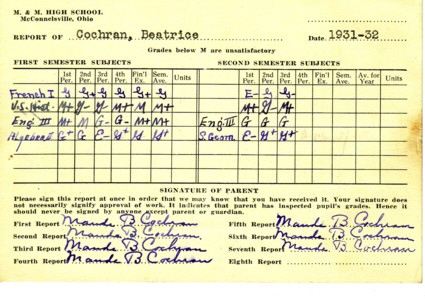 M. & M. HIGH SCHOOL
McConnelsville, Ohio
REPORT OF Cochran, Beatrice Date 1931-32
Grades below M are unsatisfactory
FIRST SEMESTER SUBJECTS 1st Per. 2nd Per. 3rd Per. 4th Per. Fin'l Ex. Sem. Ave. Units SECOND SEMESTER SUBJECTS 1st Per. 2nd Per. 3rd Per. 4th Per. Fin'l Ex. Sem. Ave. Av. for Year Units
French I G G+ G G G+ G E- G G-
U.S. Hist M+ G- M- M+ M M+ M+ G- M+
Eng III M+ M G- G- M+ M+ Eng III G G G
Algebra G+ G E- G+ G G+ S. Geom. E- G+ G+
SIGNATURE OF PARENT
Please sign this report at once in order that we may know that you have received it. Your signature does
not necessarily signify approval of work. It indicates that parent has inspected pupil's grades. Hence it
should never be signed by anyone except parent or guardian.
First Report Maude B. Cochran Fifth Report Maude B. Cochran
Second Report Maude B. Cochran Sixth Report Maude B. Cochran
Third Report Maude B. Cochran Seventh Report Maude B. Cochran
Fourth Report Maude B. Cochran Eighth Report